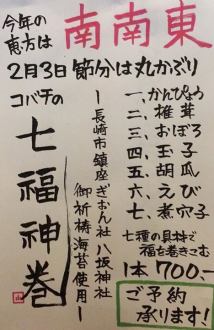 今年の
恵方は
南南東
2月3日節分は丸かぶり
コバチの
七福神巻
―長崎市鎮座ぎおん社八坂神社
御祈祷海苔使用―
一、かんぴょう
二、椎茸
三、おぼろ
四、玉子
五、胡瓜
六、えび
七、煮穴子
七種の具材で
福を巻きこむ
1本700-
ご予約
承ります!